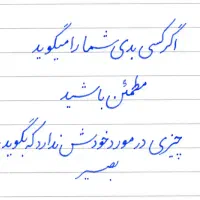 اگر کسی بدی شما را میگوید
مطمئن باشید
چیزی در مورد خودش ندارد که بگوید.
بصیر